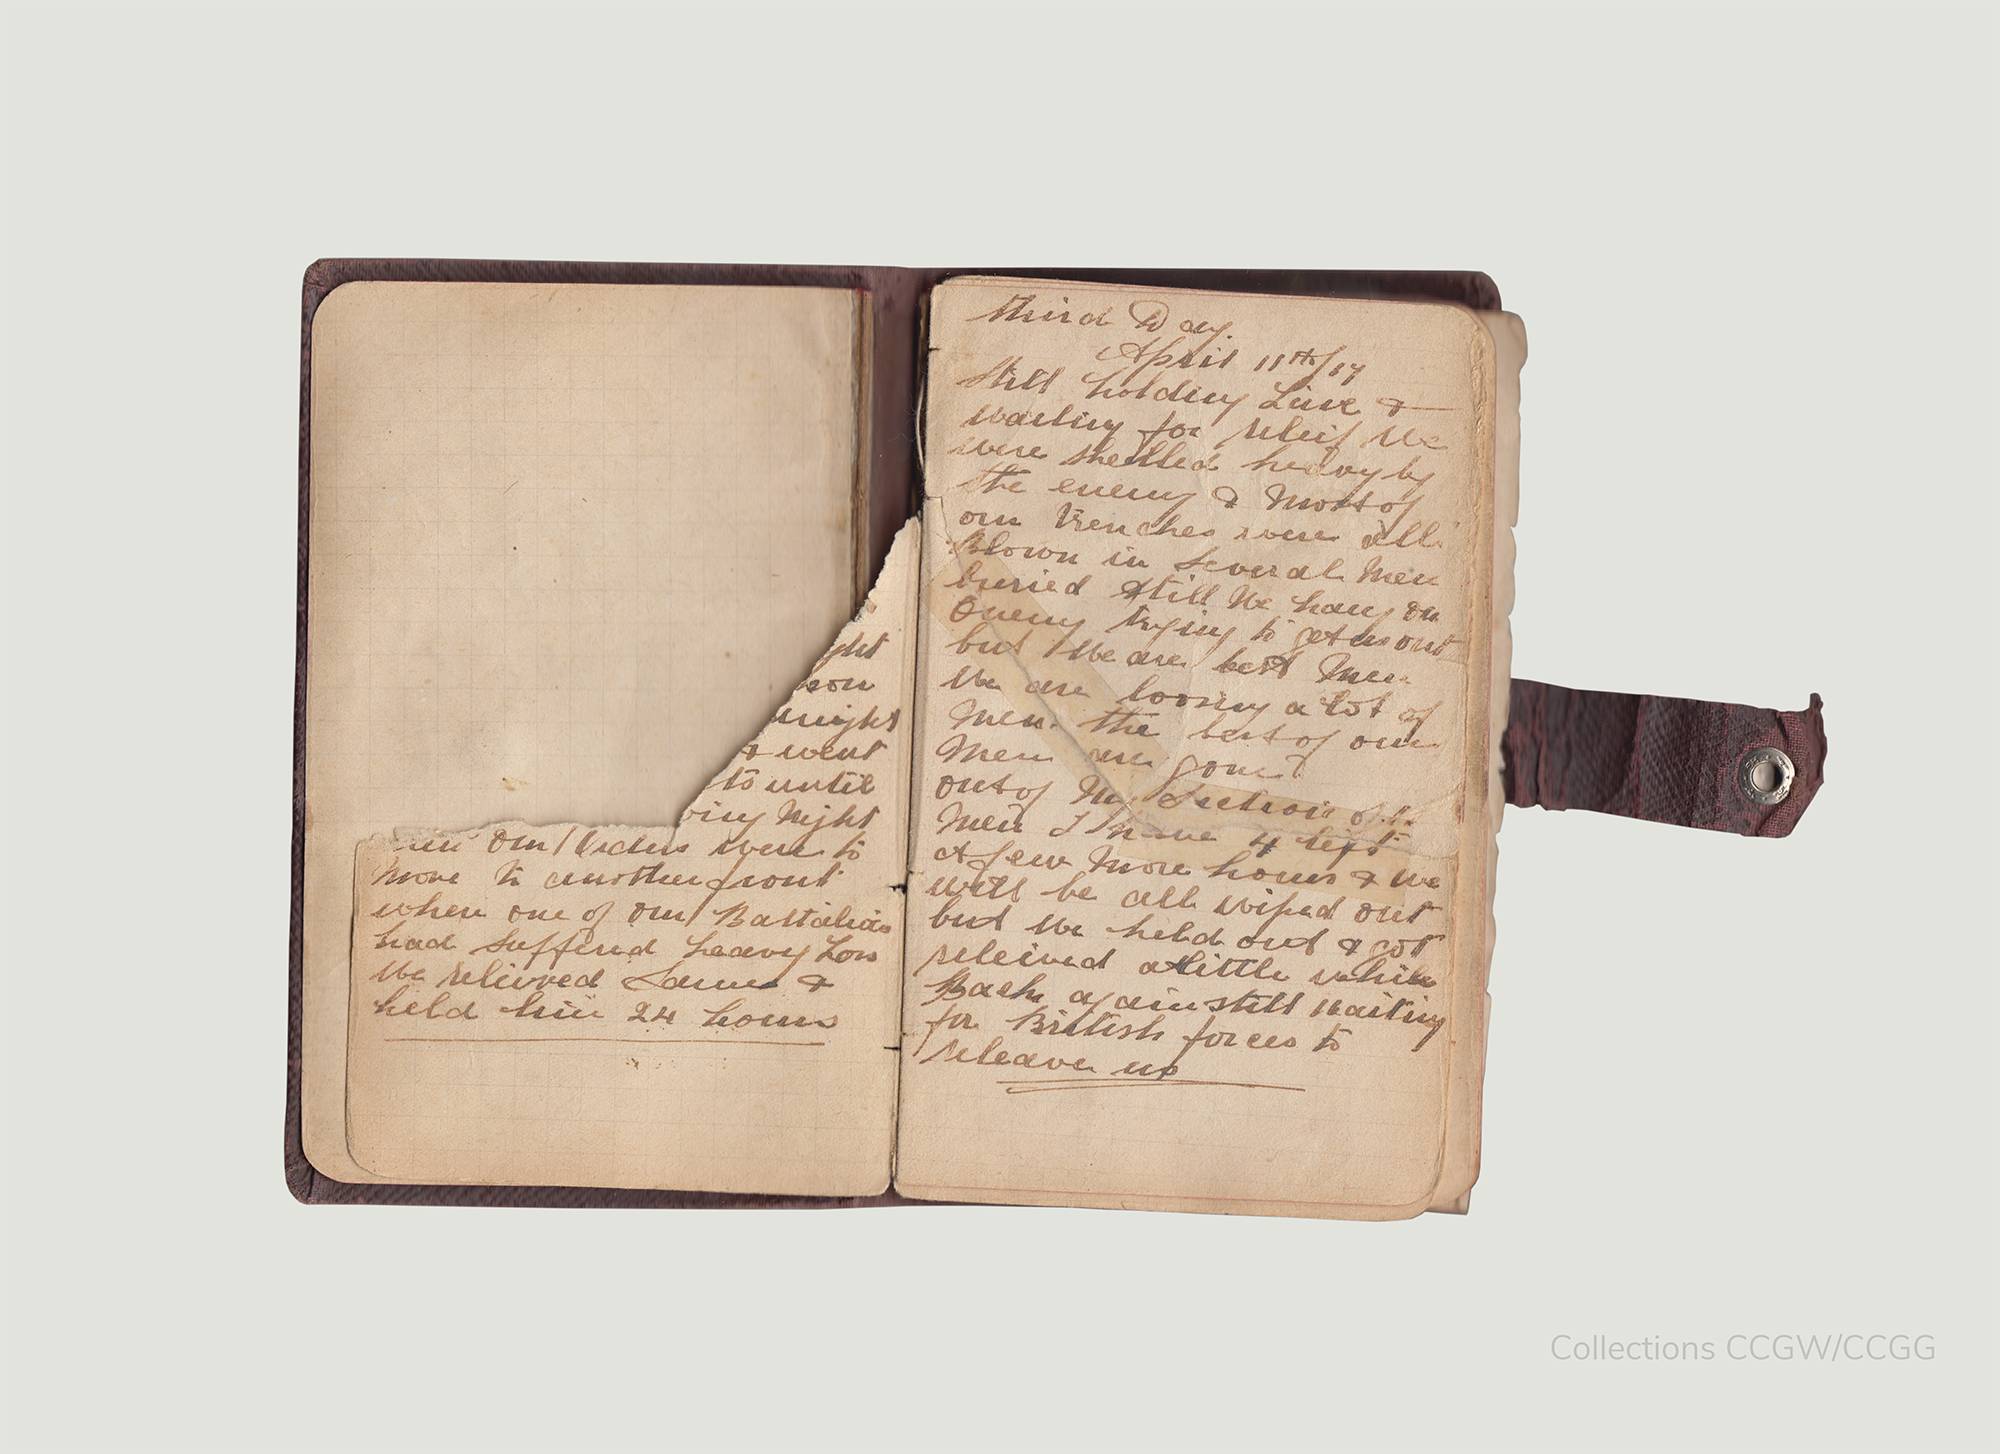 ght
oon
night
& went
to until
ing Night
our Orders were to
Move to another front
when one of our Battalion
had suffered heavy Loss
We releived Same &
held line 24 hours
third Day
April 11th/17
Still holding Line &
waiting for releif We
were shelled heavy by
the enemy & Most of
our trenches were all
Blown in Several Men
buried Still We hang on
Enemy trying to get us out
but We are best Men
We are loosing a lot of
Men. the best of our
Men are gone
out of My Section of
Men I have 4 left
A few More hours & We
will be all wiped out
but We held out & got
releived a little while
Back again still waiting
for British forces to
releave us
Collections CCGW/CCGG